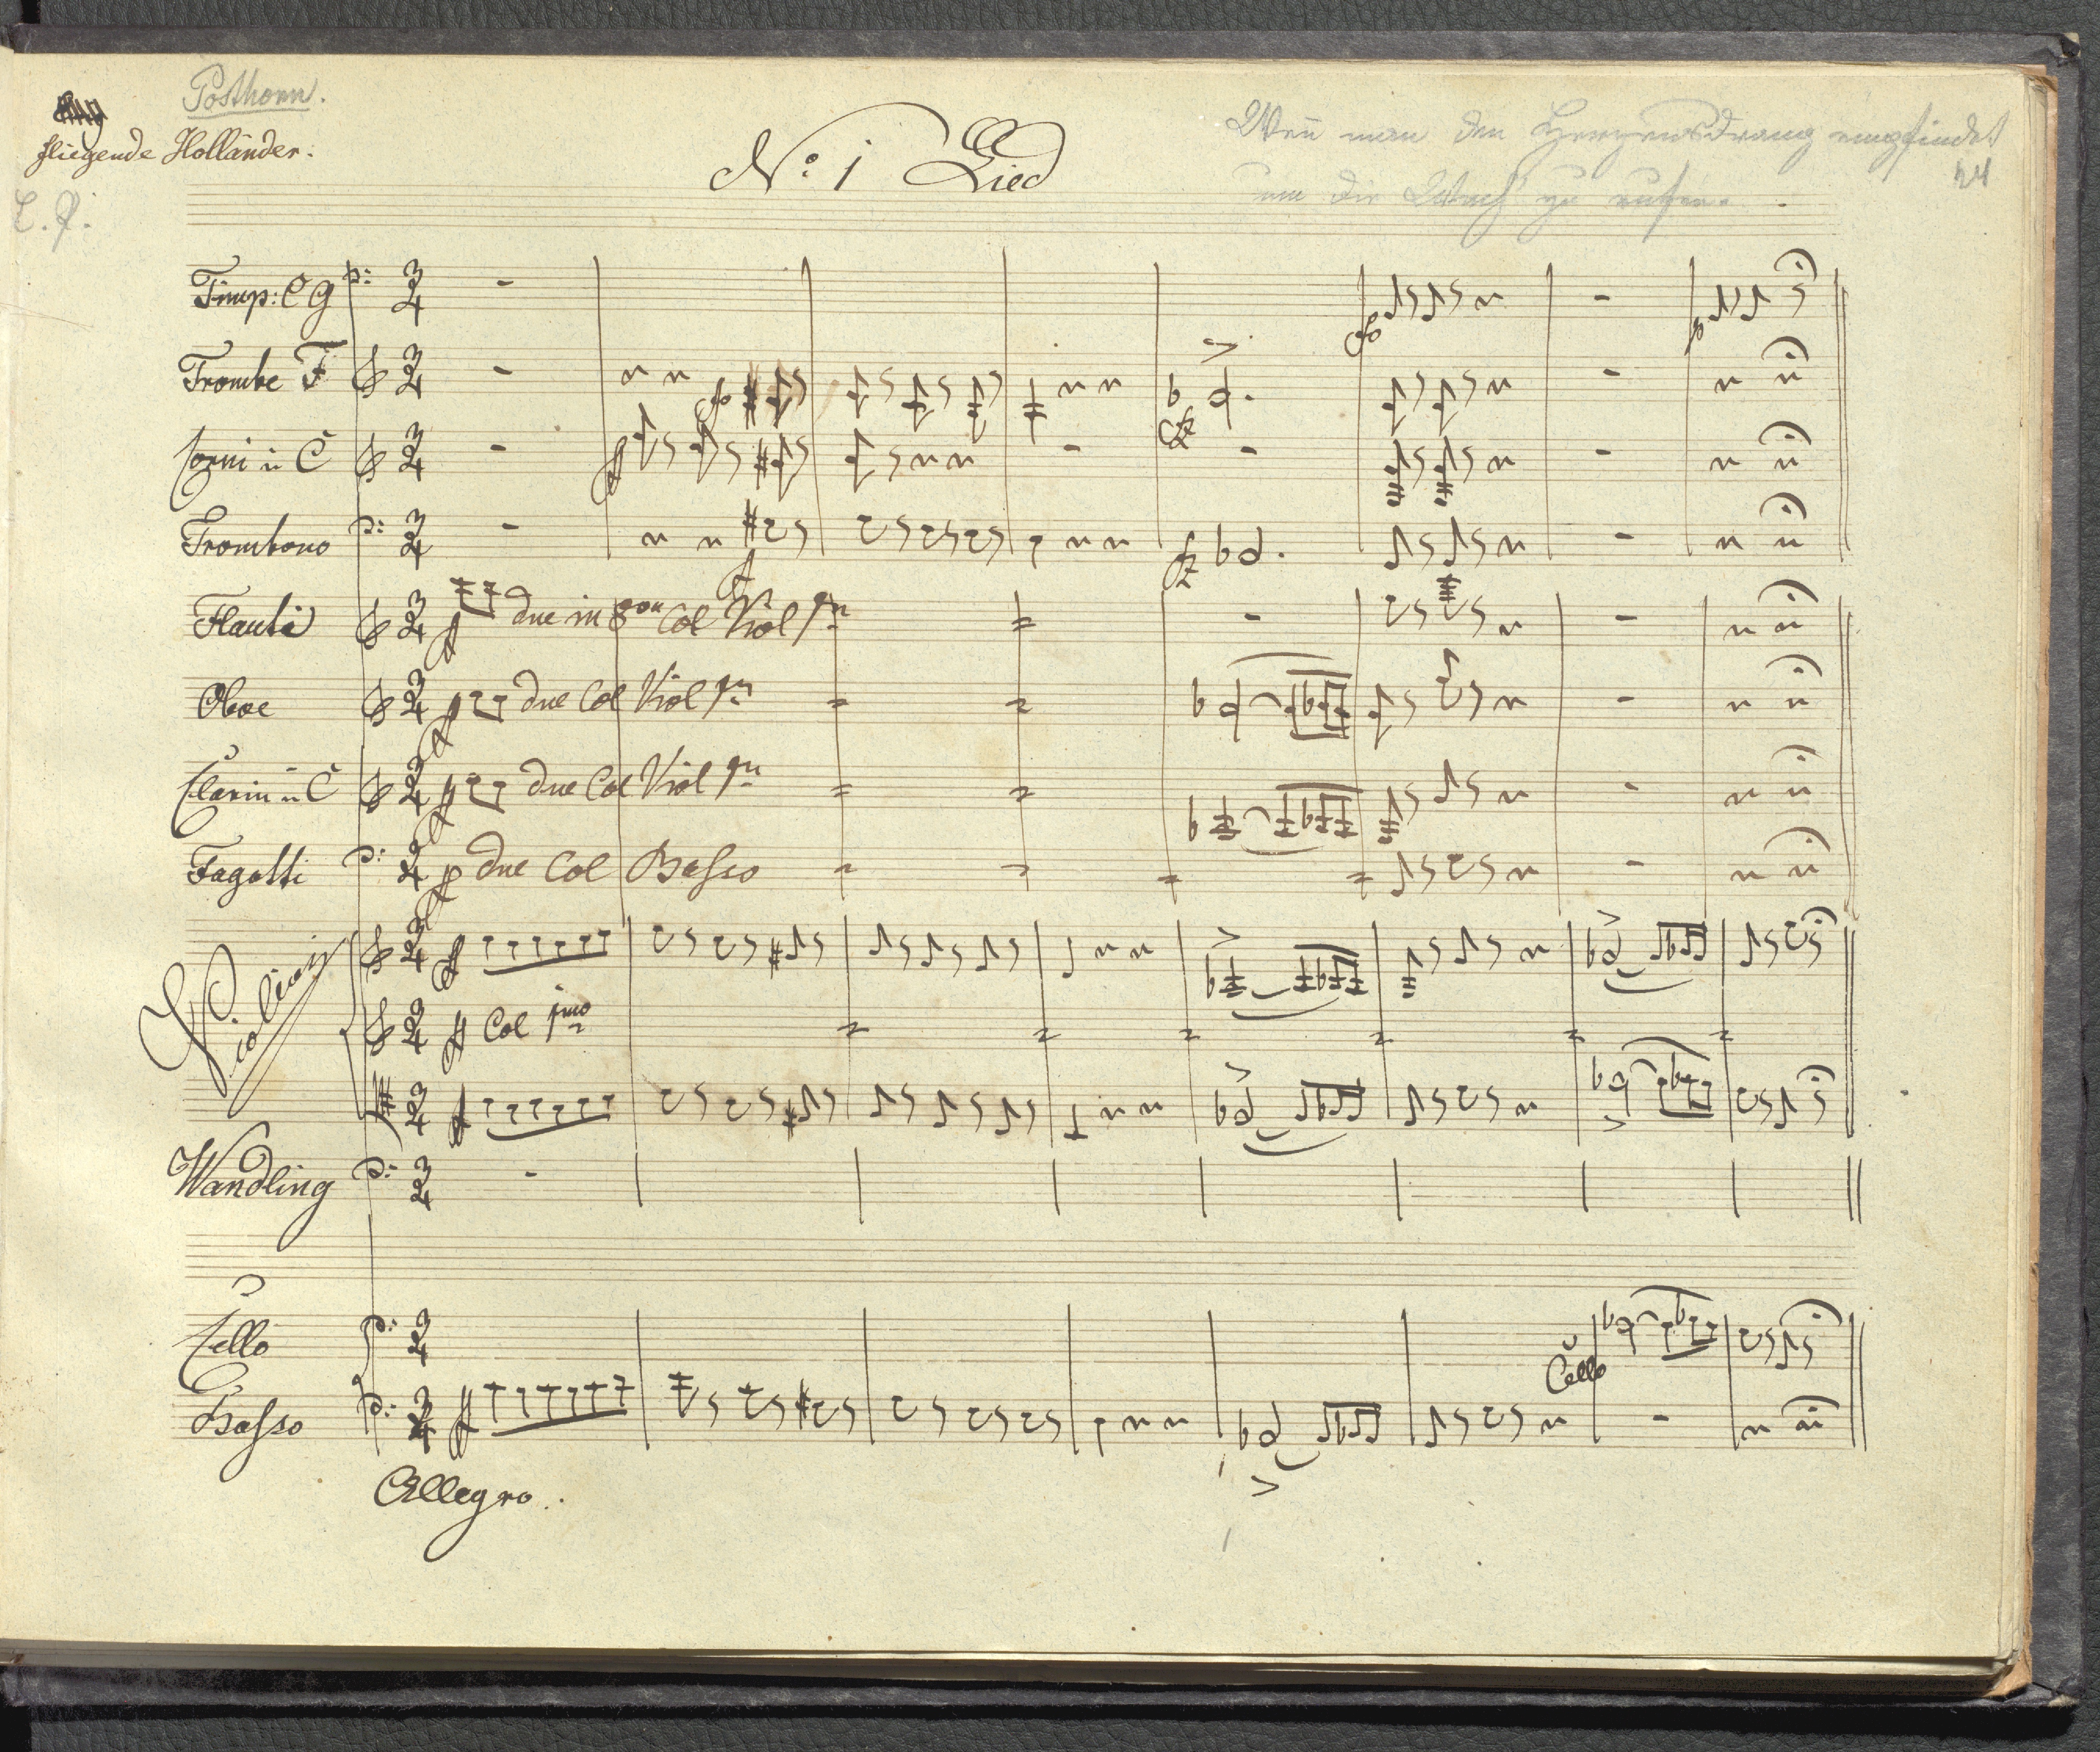 Posthorn.
fliegende Holländer.
No: 1 Lied
Wenn man den Herzensdrang empfindet
24
um die Wach zu rufen.
Timp: C G
Trombe F
Corni in C
Trombono
Flauti due in 8va Col Viol 1mo
Oboe due Col Viol 1mo
Clarin in C due Col Viol 1mo
Fagotti due Col Basso
Violini
Col 1mo
Wandling
Cello
Cello
Basso
Allegro.